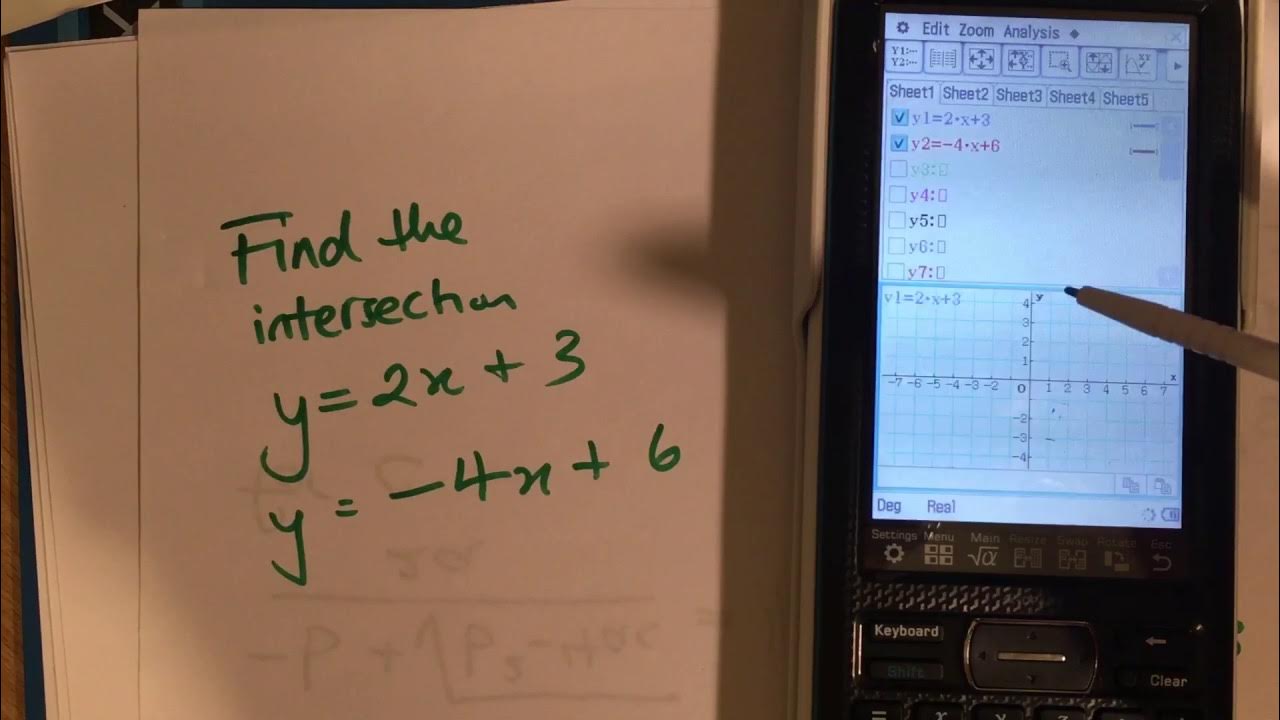 Find the
intersection
y = 2x + 3
y = -4x + 6
Edit Zoom Analysis
Y1:
Y2:
Sheet1 Sheet2 Sheet3 Sheet4 Sheet5
y1=2·x+3
y2=-4·x+6
y3:▯
y4:▯
y5:▯
y6:▯
y7:▯
y1=2·x+3
y
4
3
2
1
x
-7 -6 -5 -4 -3 -2 0 1 2 3 4 5 6 7
-2
-3
-4
Deg Real
Settings Menu Main Resize Swap Rotate Esc
√α
Keyboard
Shift
Clear